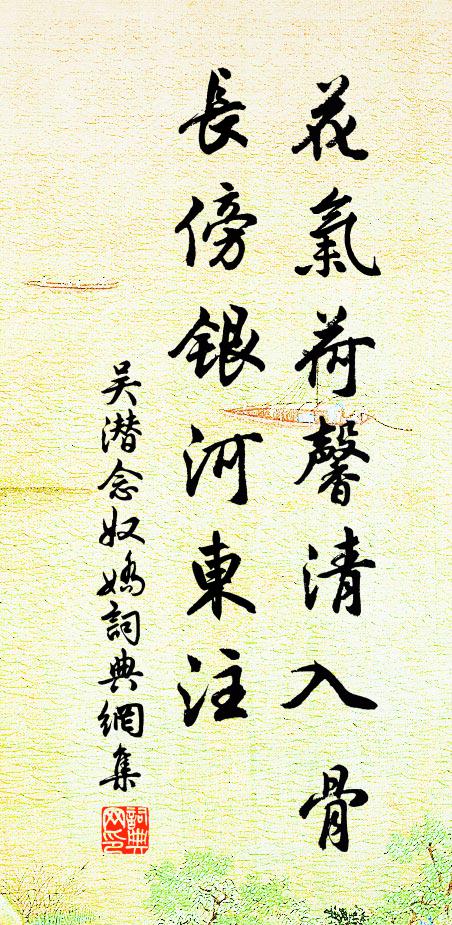 花氣荷馨清入骨
長傍銀河東注
吴潜念奴嬌詞典網集
詞典
网印